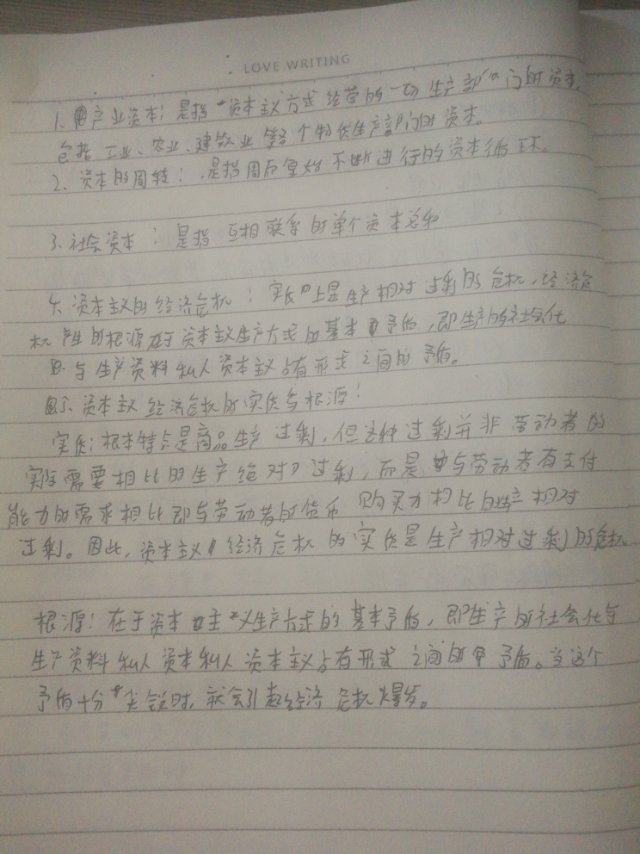 LOVE WRITING
1. 产业资本：是指资本主义方式经营的一切生产部门的资本,
包括工业、农业、建筑业等各个物质生产部门的资本。
2、资本的周转：是指周而复始不断进行的资本循环。
3.社会资本：是指互相联系的单个资本总和
4. 资本主义的经济危机：实质上是生产相对过剩的危机,经济危
机产生的根源在于资本主义生产方式的基本矛盾,即生产的社会化
与生产资料私人资本主义占有形式之间的矛盾。
5、资本主义经济危机的实质与根源：
实质：根本特点是商品生产过剩,但这种过剩并非劳动者的
实际需要相比的生产绝对过剩,而是与劳动者有支付
能力的需求相比即与劳动者的货币购买力相比的生产相对
过剩。因此,资本主义经济危机的实质是生产相对过剩的危机
根源：在于资本主义生产方式的基本矛盾,即生产的社会化与
生产资料私人资本私人资本主义占有形式之间的矛盾。当这个
矛盾十分尖锐时,就会引起经济危机爆发。